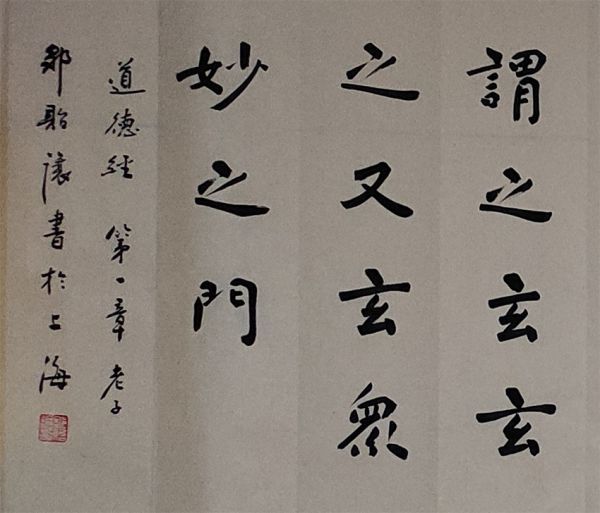 謂之玄玄
之又玄眾
妙之門
道德經 第一章 老子
鄒貽讓書於上海